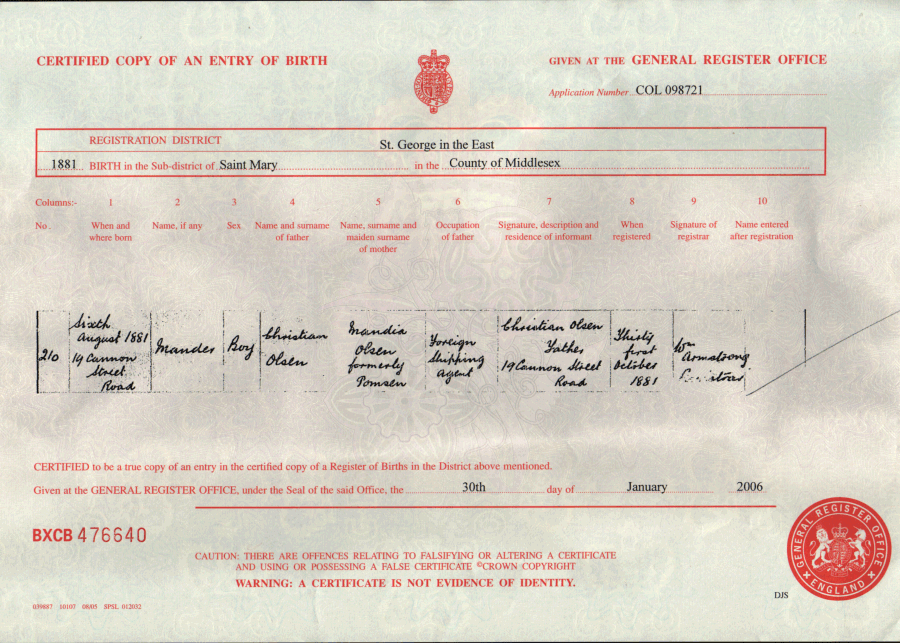 CERTIFIED COPY OF AN ENTRY OF BIRTH
GIVEN AT THE GENERAL REGISTER OFFICE
Application Number COL 098721
REGISTRATION DISTRICT St. George in the East
1881 BIRTH in the Sub-district of Saint Mary in the County of Middlesex
Columns:- 1 2 3 4 5 6 7 8 9 10
No. When and where born
Name, if any
Sex
Name and surname of father
Name, surname and maiden surname of mother
Occupation of father
Signature, description and residence of informant
When registered
Signature of registrar
Name entered after registration
210
Sixth
August 1881
19 Cannon
Street
Road
Mandes
Boy
Christian
Olsen
Mandia
Olsen
formerly
Pomsen
Foreign
Shipping
Agent
Christian Olsen
Father
19 Cannon Street
Road
Thirty
first
October
1881
Wm
Armstrong
CERTIFIED to be a true copy of an entry in the certified copy of a Register of Births in the District above mentioned.
Given at the GENERAL REGISTER OFFICE, under the Seal of the said Office, the 30th day of January 2006
BXCB 476640
CAUTION: THERE ARE OFFENCES RELATING TO FALSIFYING OR ALTERING A CERTIFICATE
AND USING OR POSSESSING A FALSE CERTIFICATE ©CROWN COPYRIGHT
WARNING: A CERTIFICATE IS NOT EVIDENCE OF IDENTITY.
GENERAL REGISTER OFFICE
ENGLAND
DJS
039887 10103 08/05 SPSL 012032